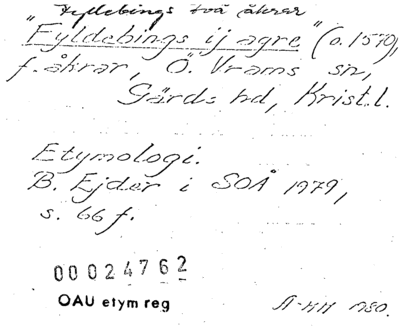 Fyldebings två åkrar
"Fyldebings ij agre" (o. 1570),
f. åkrar, Ö. Vrams sn,
Gärds hd, Krist. l.
Etymologi.
B. Ejder i SOÅ 1979,
s. 66 f.
00024762
OAU etym reg
1980.